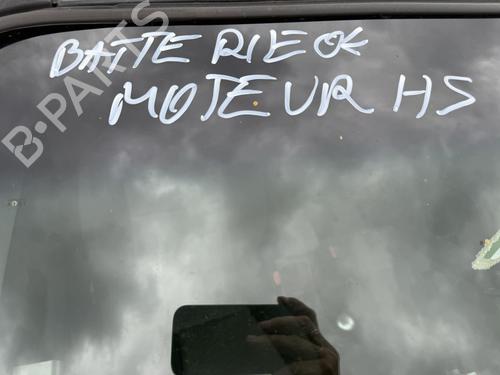 BATTERIE OK
MOTEUR HS
B-PARTS